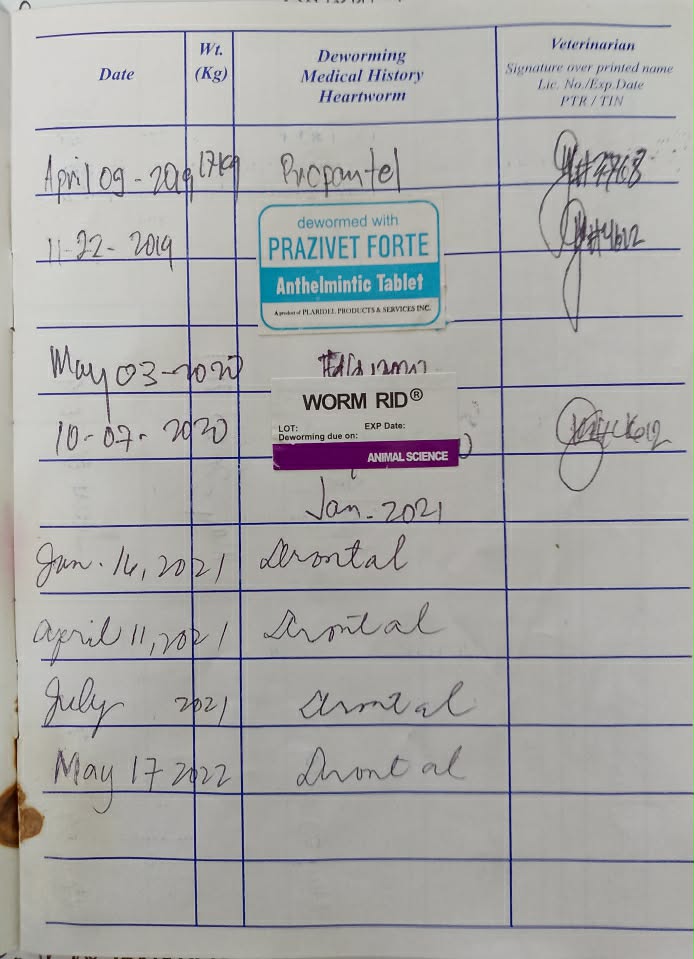 Date
Wt.
(Kg)
Deworming
Medical History
Heartworm
Veterinarian
Signature over printed name
Lic. No./Exp.Date
PTR / TIN
April 09 - 2019 17kg Propantel
11-22- 2019
dewormed with
PRAZIVET FORTE
Anthelmintic Tablet
A product of PLARIDEL PRODUCTS & SERVICES INC.
May 03-2020
10-07- 2020
WORM RID®
LOT: EXP Date:
Deworming due on:
ANIMAL SCIENCE
Jan. 2021
Jan. 16, 2021 Drontal
April 11, 2021 Drontal
July 2021 Drontal
May 17 2022 Drontal